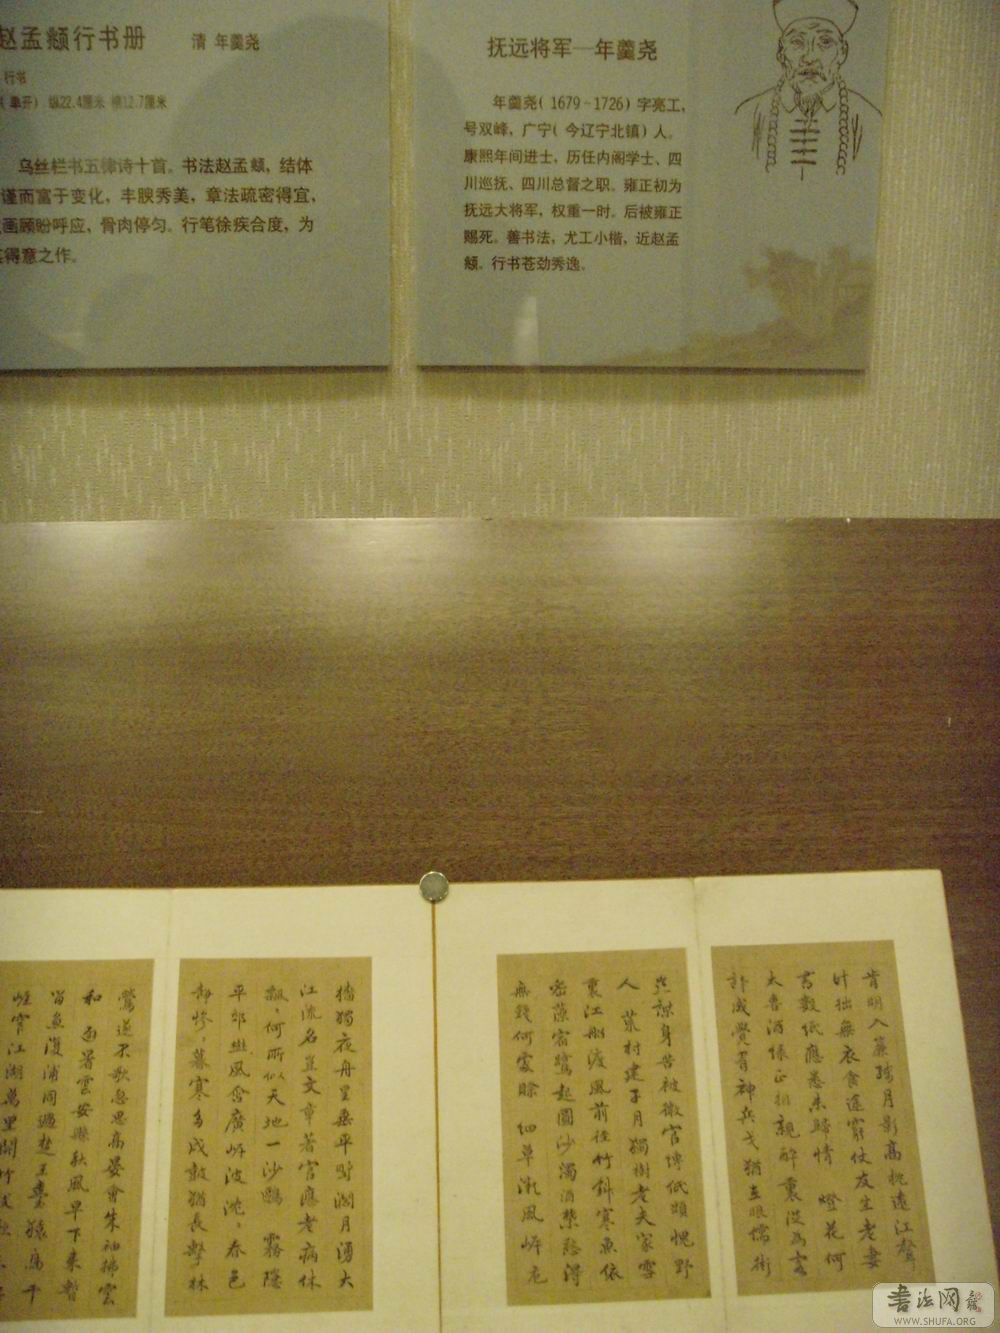 赵孟頫行书册 清 年羹尧
行书
(单开) 纵22.4厘米 横12.7厘米
乌丝栏书五律诗十首。书法赵孟頫，结体
谨而富于变化，丰腴秀美，章法疏密得宜，
画顾盼呼应，骨肉停匀。行笔徐疾合度，为
得意之作。
抚远将军—年羹尧
年羹尧(1679-1726)字亮工，
号双峰，广宁(今辽宁北镇)人。
康熙年间进士，历任内阁学士、四
川巡抚、四川总督之职。雍正初为
抚远大将军，权重一时。后被雍正
赐死。善书法，尤工小楷，近赵孟
頫。行书苍劲秀逸。
肯明入簾殘月影高枕遠江聲
計拙無衣食途窮仗友生老妻
書數紙應悉未歸情 燈花何
太喜酒綠正相親醉裏從為客
詩成覺有神兵戈猶在眼儒術
豈謀身苦被微官縛低頭愧野
人 荒村建子月獨樹老夫家雪
裏江船渡風前徑竹斜寒魚依
密藻宿鷺起圓沙濁酒禁愁得
無錢何處賒 細草微風岸危
檣獨夜舟星垂平野闊月湧大
江流名豈文章著官應老病休
飄〻何所似天地一沙鷗 霧隱
平郊樹風含廣岸波沈〻春色
靜慘〻暮寒多戍鼓猶長擊林
鶯遂不歌忽思高宴會朱袖拂雲
和 署雲安縣秋風早下來暫
留魚復浦同過楚王臺猿鳥千
崖窄江湖萬里開竹枝歌
书法网
WWW.SHUFA.ORG